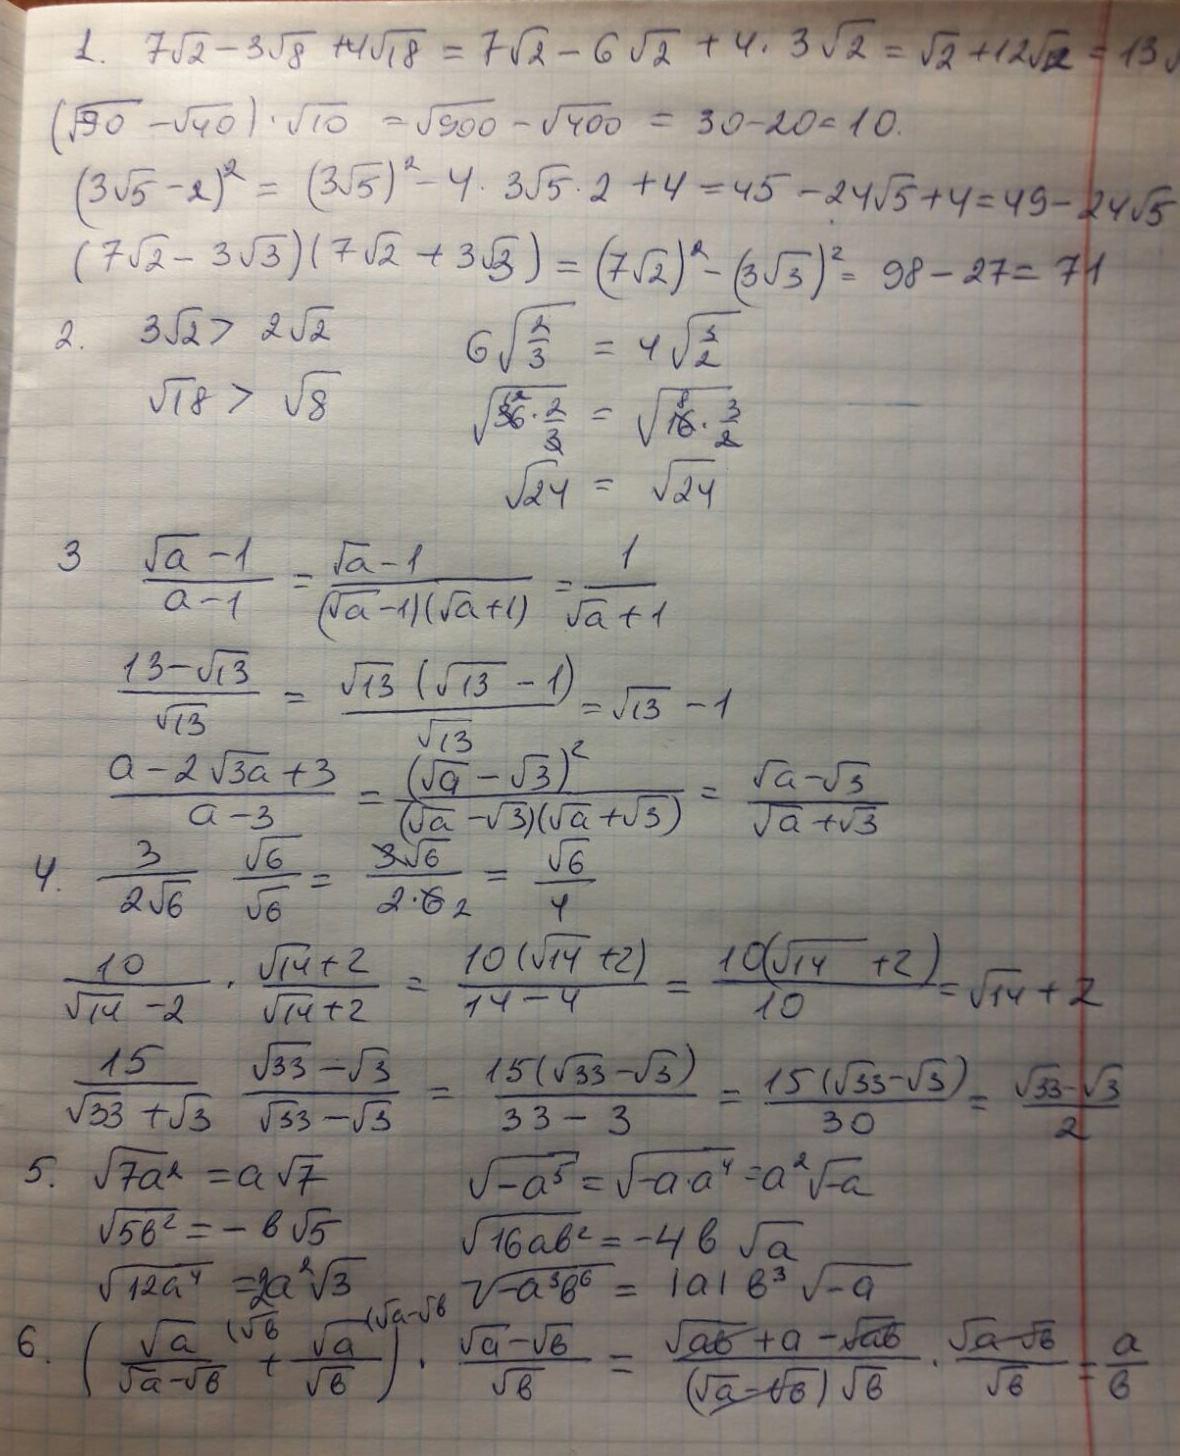 1. 7√2 − 3√8 + 4√18 = 7√2 − 6√2 + 4 · 3√2 = √2 + 12√2 = 13√
(√90 − √40) · √10 = √900 − √400 = 30 − 20 = 10.
(3√5 − 2)² = (3√5)² − 4 · 3√5 · 2 + 4 = 45 − 24√5 + 4 = 49 − 24√5
(7√2 − 3√3)(7√2 + 3√3) = (7√2)² − (3√3)² = 98 − 27 = 71
2. 3√2 > 2√2 6√(2/3) = 4√(3/2)
√18 > √8 √(36 · 2/3) = √(16 · 3/2)
√24 = √24
3 (√a − 1)/(a − 1) = (√a − 1)/((√a − 1)(√a + 1)) = 1/(√a + 1)
(13 − √13)/√13 = √13(√13 − 1)/√13 = √13 − 1
(a − 2√3a + 3)/(a − 3) = (√a − √3)²/((√a − √3)(√a + √3)) = (√a − √3)/(√a + √3)
4. 3/(2√6) √6/√6 = 3√6/(2 · 6) 2 = √6/4
10/(√14 − 2) · (√14 + 2)/(√14 + 2) = 10(√14 + 2)/(14 − 4) = 10(√14 + 2)/10 = √14 + 2
15/(√33 + √3) (√33 − √3)/(√33 − √3) = 15(√33 − √3)/(33 − 3) = 15(√33 − √3)/30 = (√33 − √3)/2
5. √(7a²) = a√7 √(−a⁵) = √(−a · a⁴) = a²√−a
√(5в²) = −в√5 √(16ав²) = −4в√a
√(12a⁴) = 2a²√3 √(−a³в⁶) = |a| в³ √−a
6. (√a/(√a − √в) (√в + √a/√в (√a − √в) · (√a − √в)/√в = (√aв + a − √aв)/((√a − √в)√в) · (√a − √в)/√в = a/в